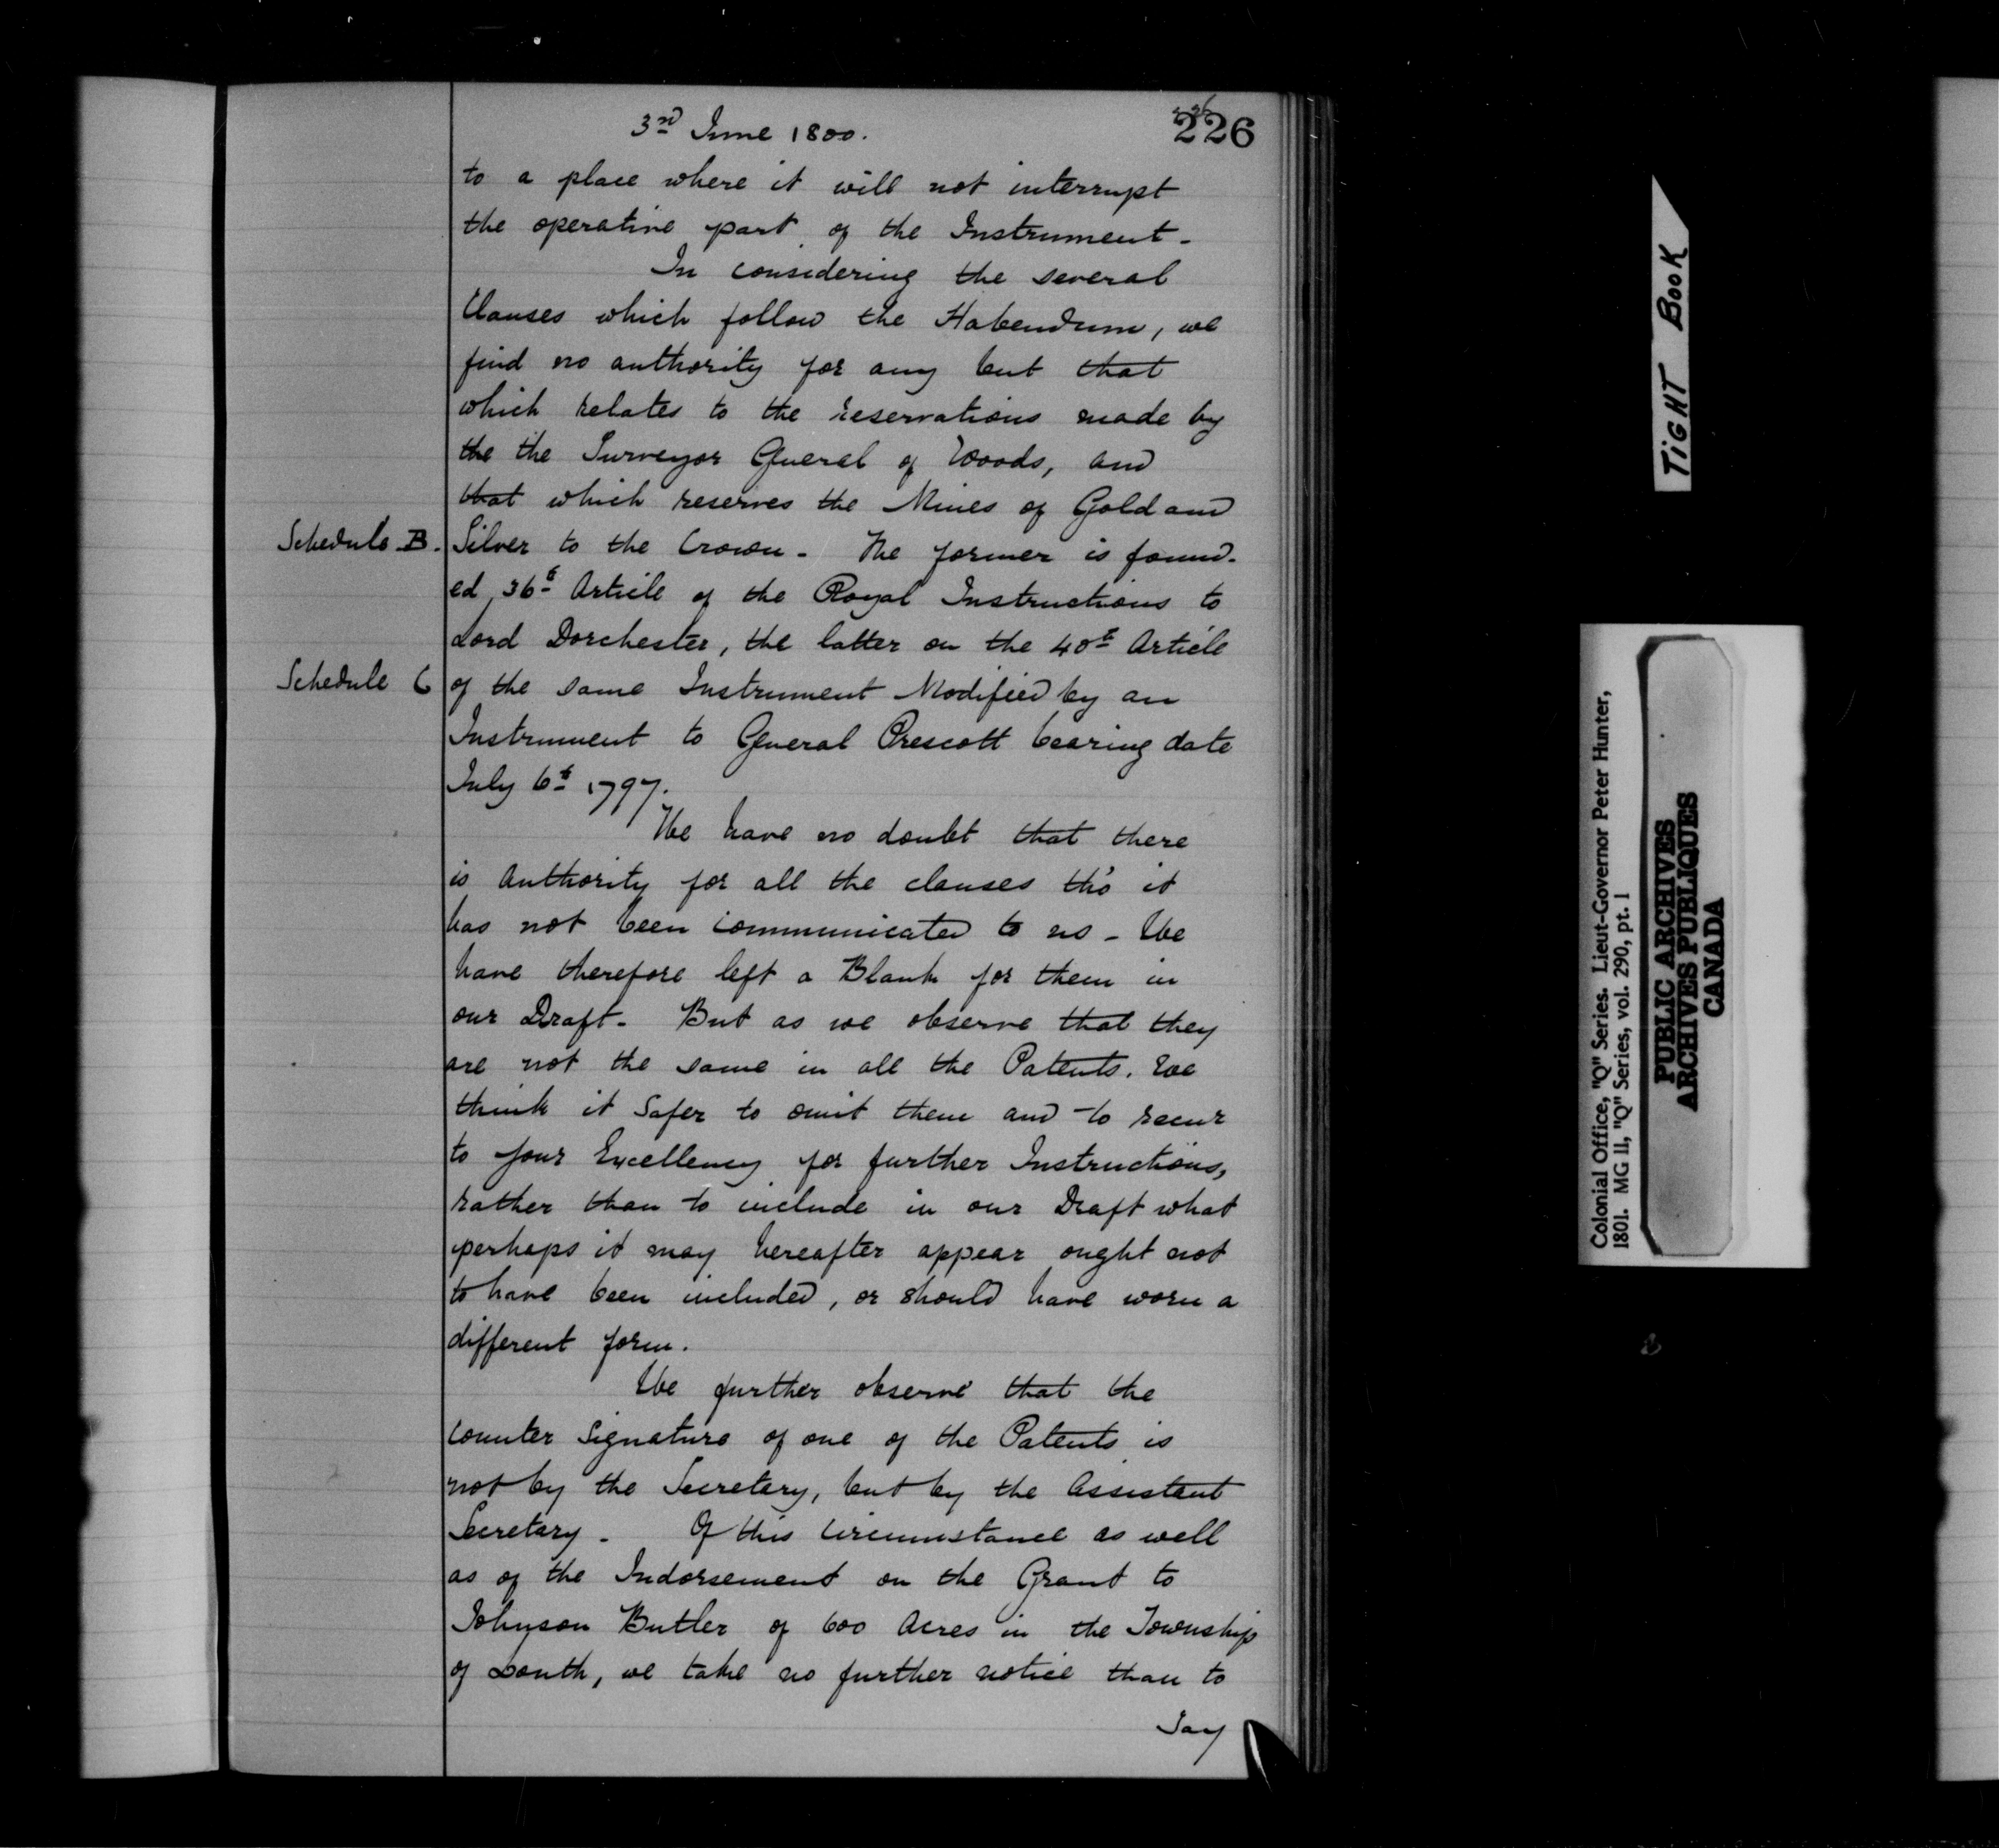 3rd June 1800.
226
to a place where it will not interrupt
the operative part of the Instrument -
In considering the several
Clauses which follow the Habendum, we
find no authority for any but that
which relates to the reservations made by
the the Surveyor General of Woods, and
that which reserves the Mines of Gold and
Schedule B.
Silver to the Crown - The former is found-
ed, 36t Article of the Royal Instructions to
Lord Dorchester, the latter on the 40t Article
Schedule C
of the same Instrument Modified by an
Instrument to General Prescott bearing date
July 6t 1797.
We have no doubt that there
is Authority for all the clauses tho' it
has not been communicated to us - We
have therefore left a Blank for them in
our Draft - But as we observe that they
are not the same in all the Patents. We
think it Safer to omit them and to recur
to Your Excellency for further Instructions,
rather than to include in our Draft what
perhaps it may hereafter appear ought not
to have been included, or should have worn a
different form.
We further observe that the
Counter Signature of one of the Patents is
not by the Secretary, but by the Assistant
Secretary - Of this Circumstance as well
as of the Indorsement on the Grant to
Johnson Butler of 600 Acres in the Township
of Louth, we take no further notice than to
Say
TIGHT BOOK
Colonial Office, "Q" Series. Lieut-Governor Peter Hunter,
1801. MG 11, "Q" Series, vol. 290, pt. 1
PUBLIC ARCHIVES
ARCHIVES PUBLIQUES
CANADA